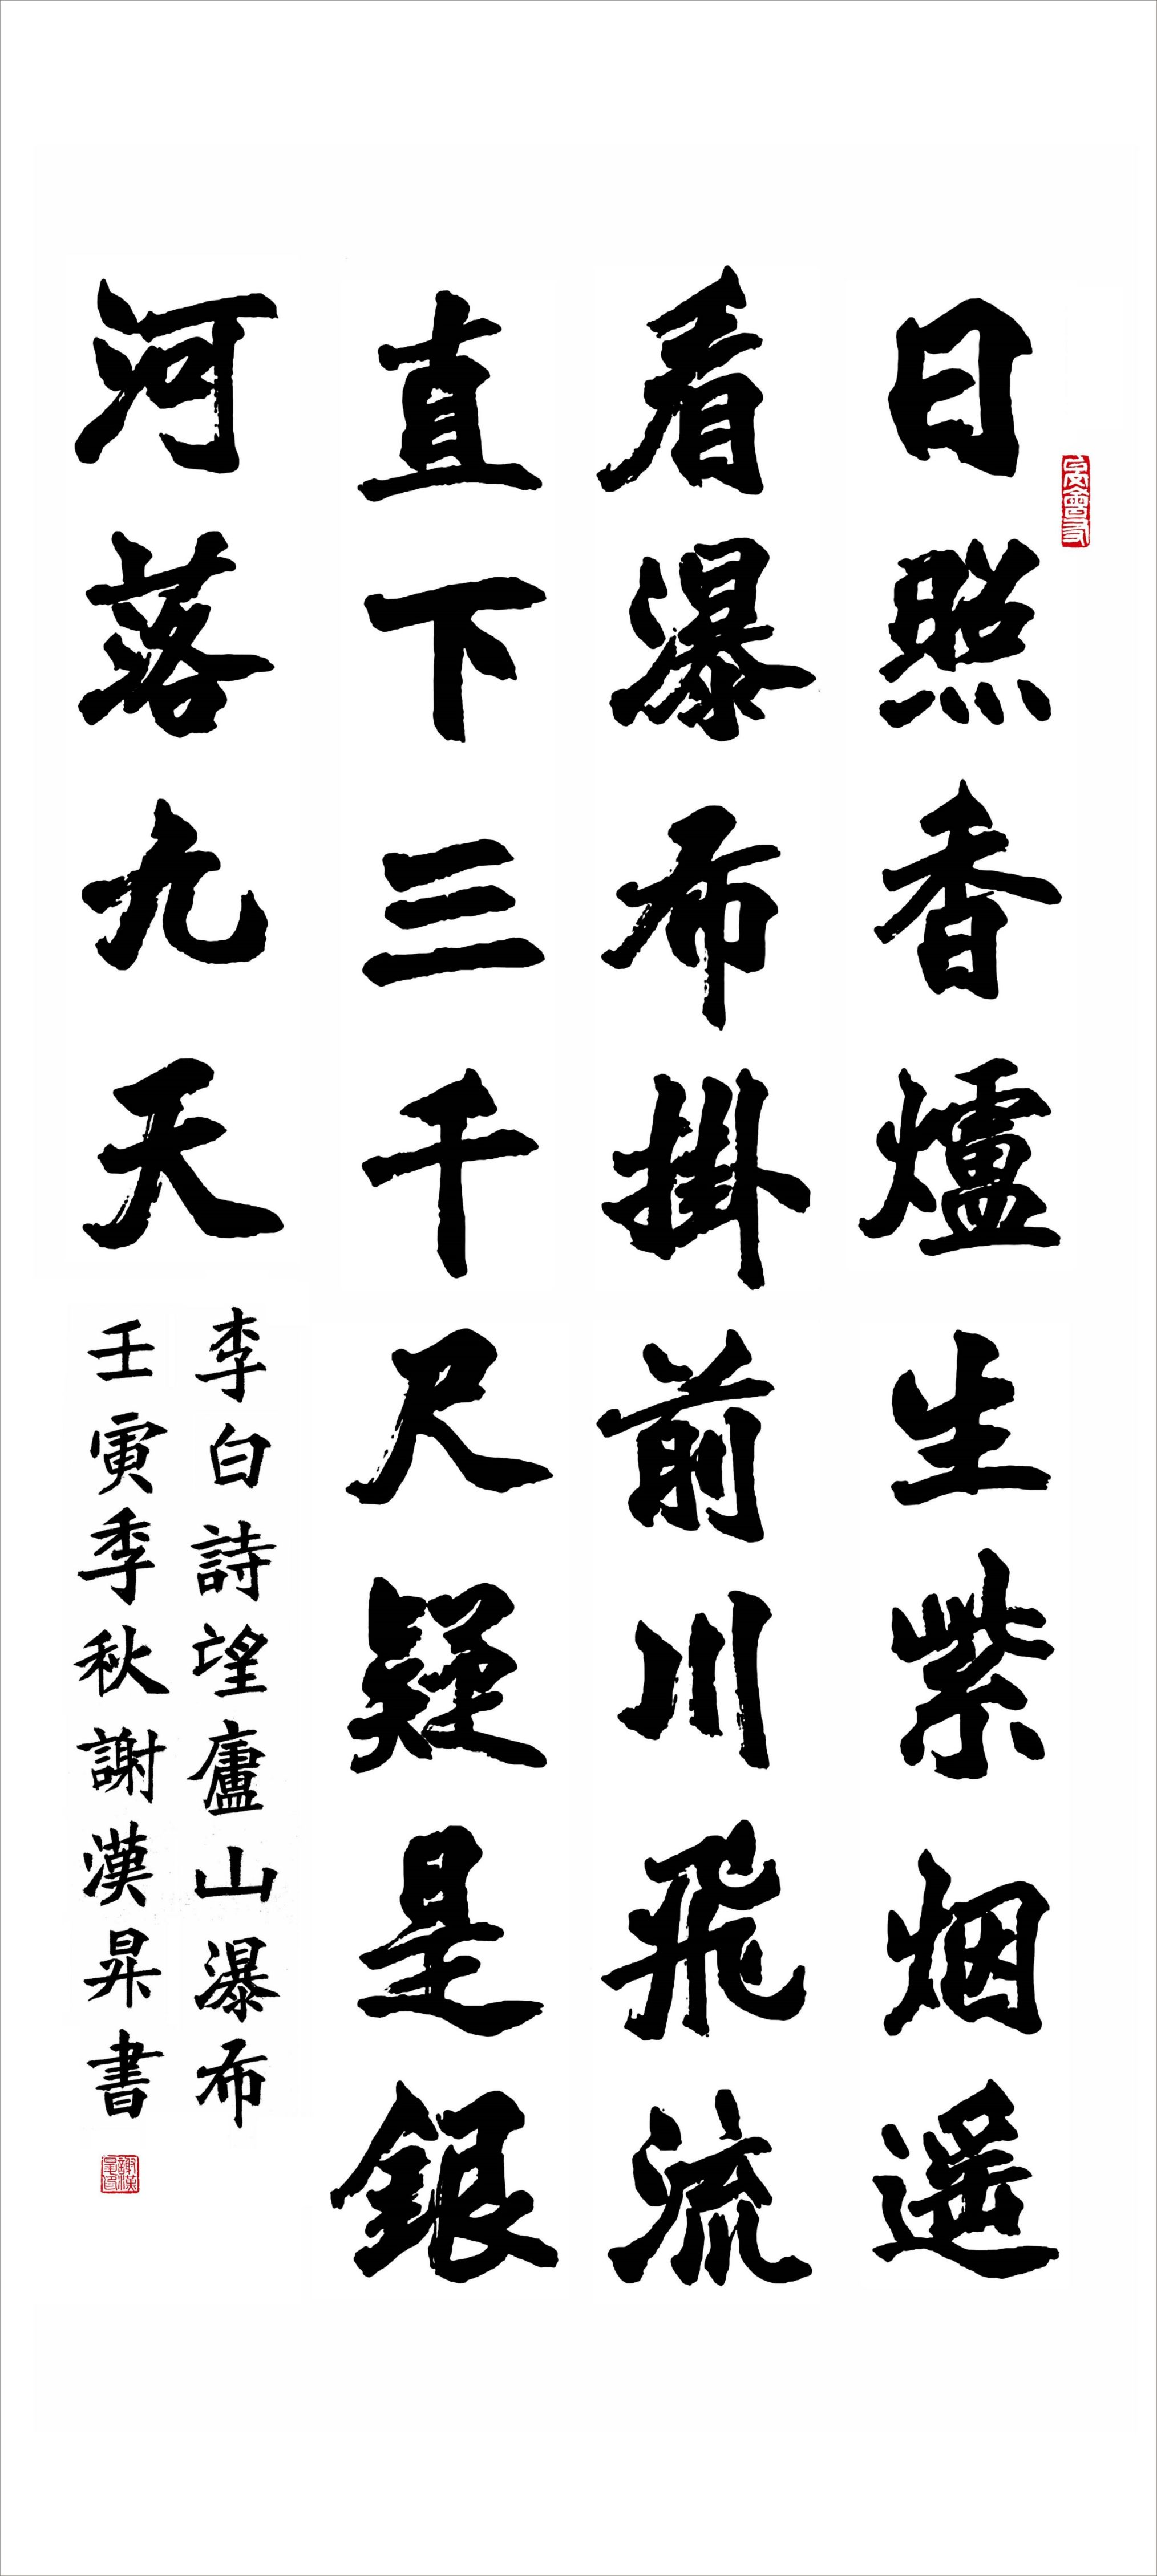 日照香爐生紫烟遥
看瀑布掛前川飛流
直下三千尺疑是銀
河落九天
李白詩望廬山瀑布
壬寅季秋謝漢昇書